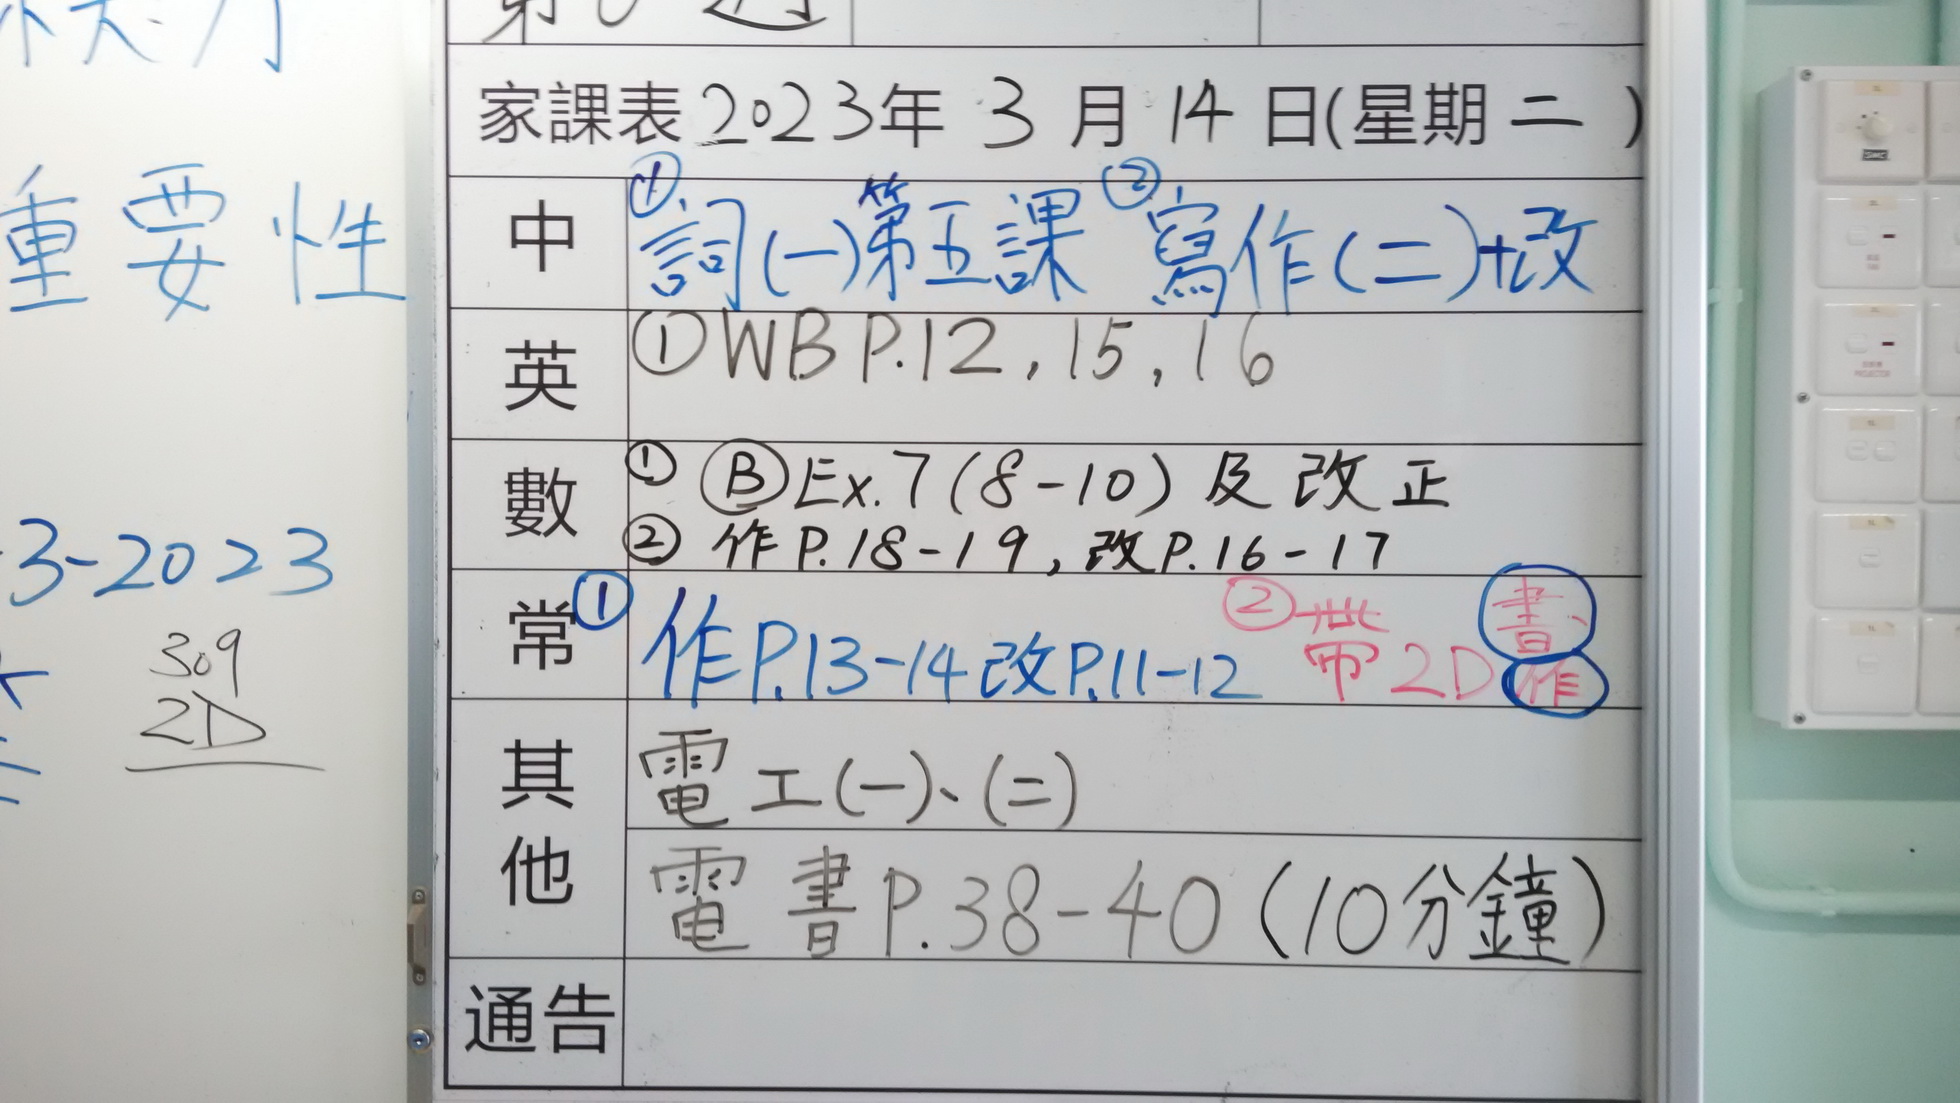 重要性
3-2023
309
2D
家課表2023年 3 月 14 日(星期 二 )
中 ①詞(一)第五課 ②寫作(二)+改
英 ①WB P.12, 15, 16
數 ① Ⓑ Ex.7(8-10) 及改正
② 作P.18-19, 改P.16-17
常 ①作P.13-14改P.11-12 ②帶2D書、
作
其他 電工(一)、(二)
電書P.38-40 (10分鐘)
通告
PROJECTOR